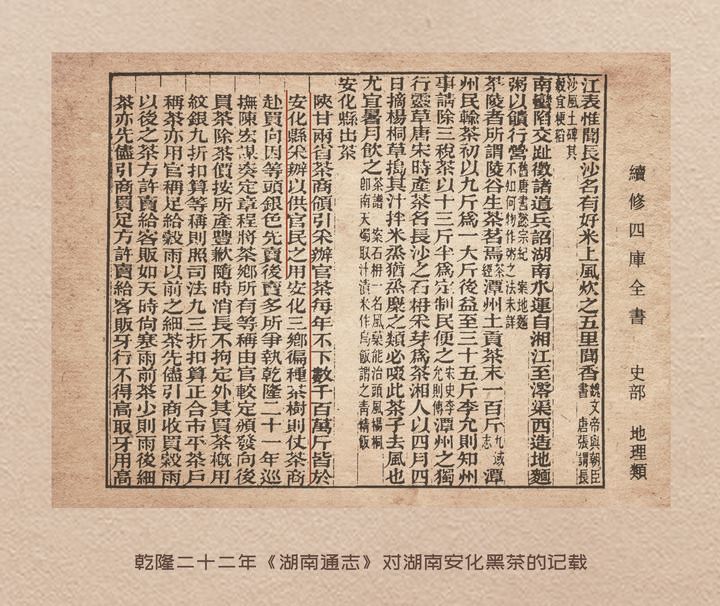 續修四庫全書 史部 地理類
江表惟聞長沙名有好米上風炊之五里聞香魏文帝與朝臣書 唐張謂長
沙風土碑其穀宜稉稻
南蠻陷交趾徵諸道兵詔湖南水運自湘江至澪渠西造地麵
粥以饋行營舊唐書懿宗紀 案地麵不知何物作粥之法未詳
茶陵者所謂陵谷生茶茗焉茶經潭州土貢茶末一百斤九域志潭
州民輸茶初以九斤爲一大斤後益至三十五斤李允則知州
事請除三稅茶以十三斤半爲定制民便之宋史李允則傳潭州之獨
行靈草唐宋時產茶名長沙之石枏采芽爲茶湘人以四月四
日摘楊桐草搗其汁拌米蒸猶蒸麋之類必啜此茶子去風也
尤宜暑月飲之茶譜 案石枏一名風藥能治頭風楊桐卽南天燭取汁漬米作烏飯謂之靑精飯
安化縣出茶
陝甘兩省茶商領引采辦官茶每年不下數千百萬斤皆於
安化縣采辦以供官民之用安化三鄉徧種茶樹則仗茶商
赴買向因等頭銀色先賣後賣多所爭執乾隆二十一年巡
撫陳宏謀奏定章程將茶鄉所有等稱由官較定頒發向後
買茶除茶價按所產豐歉隨時消長不拘定外其買茶概用
紋銀九折扣算等稱則照司法九三折扣算正合市平茶戶
稱茶亦用官稱足給穀雨以前之細茶先儘引商收買穀雨
以後之茶方許賣給客販如天時尙寒雨前茶少則雨後細
茶亦先儘引商買足方許賣給客販牙行不得高取牙用高
乾隆二十二年《湖南通志》对湖南安化黑茶的记载